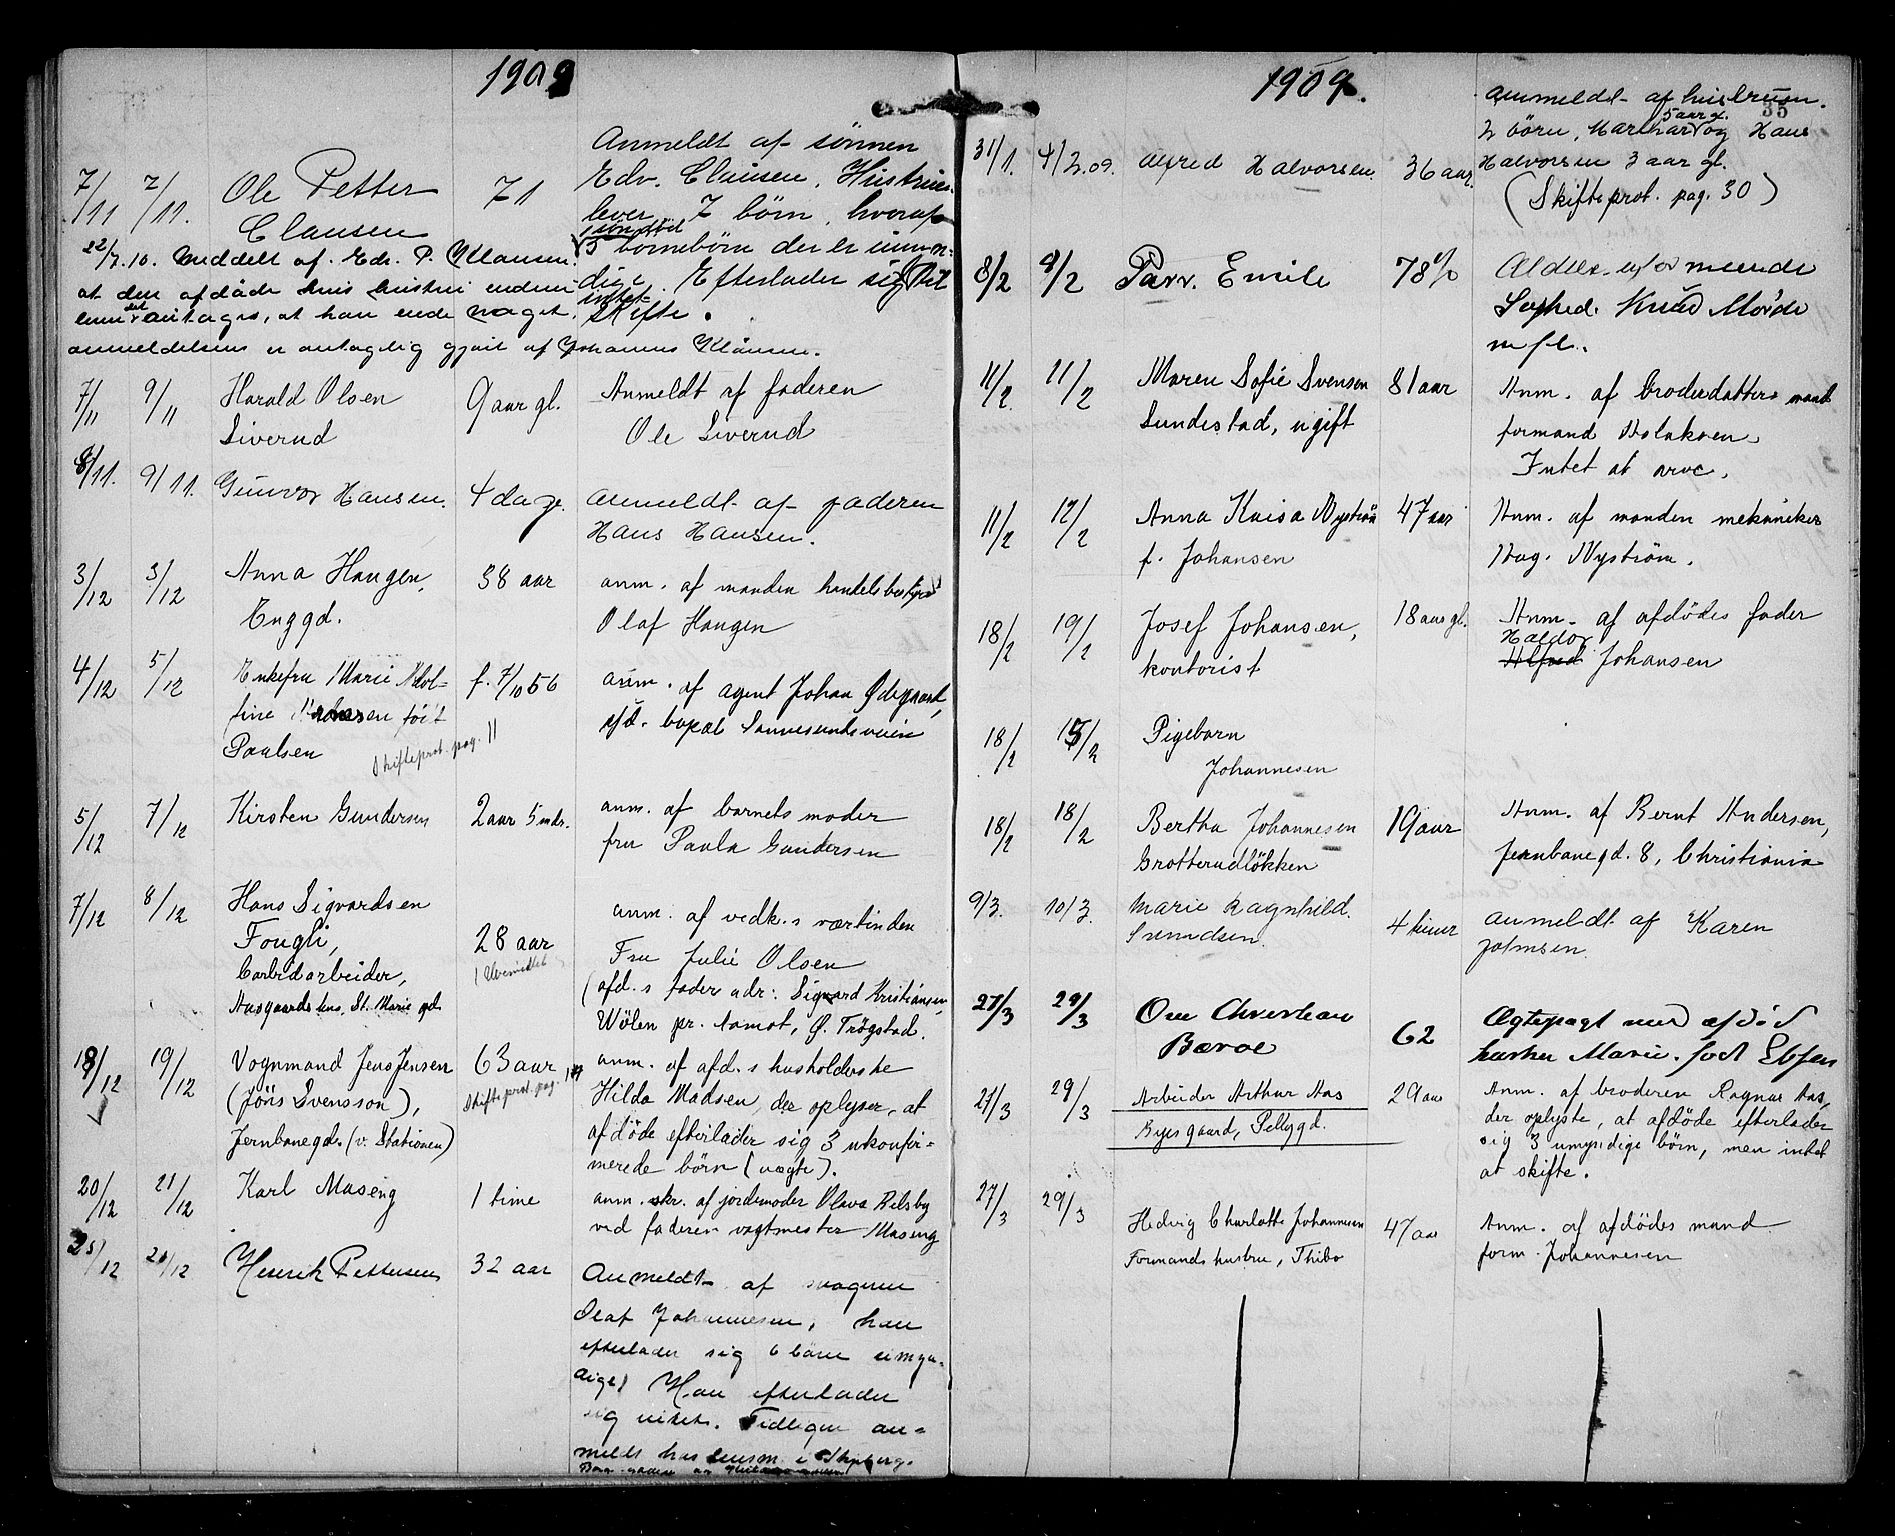 1909
7/11 7/11. Ole Petter 71 Anmeldt af sönnen
Clausen Edv. Clausen, Hustruen
lever, 7 börn, hvoraf
5 börnebörn der er umyn-
dige. Efterlader sig
intet Skifte.
22/7.10. Meddelt af Edv. P. Klausen
at den afdøde hans hustru
antages, at han noget.
anmeldelsen er antagelig gjort af Johannes Klausen.
7/11 9/11 Harald Olsen 9 aar gl. Anmeldt af faderen
Siverud Ole Siverud
8/11. 9/11. Gunvor Hansen. 4 dage. Anmeldt af faderen
Hans Hansen.
3/12 3/12 Anna Haugen, 38 aar anm. af manden handelsbestyrer
Enggd. Olaf Haugen
4/12 5/12 Enkefru Marie f. 4/10 56 anm. af agent Johan Ødegaard,
född s/d. bopæl Sannesundsveien
Paulsen Skifteprot. pag. 11
5/12 7/12 Kirsten Gundersen 2 aar 5 mdr. anm. af barnets moder
fru Paula Gundersen
7/12 8/12 Hans Sigvardsen anm. af vedk.s værtinden
Fougli, 28 aar Fru Julie Olsen
Carbidarbeider, (afd.s fader adr: Sigvard Kristiansen,
Aasgaards hus, St. Marie gd. Wölen pr. Aamot, Ø. Trögstad.
18/12 19/12 Vognmand Jens Jensen 63 aar anm. af afd.s husholderske
(Jöns Svensson), Skifteprot. pag. Hilda Madsen, der oplyser, at
Jernbanegd. (v. Stationen) afdöde efterlader sig 3 ukonfir-
merede börn (uægte).
20/12 21/12 Karl Maseng 1 time anm. skr. af jordemoder Olava Rilsby
ved faderen vagtmester Maseng
25/12 28/12 Henrik Pettersen 32 aar Anmeldt af svogeren
Olaf Johannesen, han
efterlader sig 6 börn umyn-
dige. Han efterlader
sig intet. Tidligere an-
meldt hos lensm. i Skjeberg.
1909.
35
31/1. 4/2.09. Alfred Halvorsen. 36 aar. Anmeldt af hustruen.
2 börn, Marthar 5 aar gl. og Hans
Halvorsen 3 aar gl.
(Skifteprot. pag. 30)
8/2 8/2 Parr. Emile 78 Alders
Knud Mörde
m fl.
11/2 11/2 Maren Sofie Svensen 81 aar Anm. af broderdatters mand
Sundestad, ugift formand Aslaksen.
Intet at arve.
11/2 12/2 Anna Kaisa Nyström 47 aar Anm. af manden mekaniker
f. Johansen Aug. Nyström.
18/2 19/2 Josef Johansen, 18 aar gl. Anm. af afdödes fader
kontorist Haldor Alfred Johansen
18/2 15/2 Pigebarn
Johannesen
18/2 18/2 Bertha Johannesen 19 aar Anm. af Bernt Andersen,
Grotterudlökken Jernbanegd. 8, Christiania
9/3. 10/3. Marie Ragnhild. 4 timer Anmeldt af Karen
Svendsen. Johnsen.
27/3 29/3 Ove Christian 62 Ægtepagt med afdöd
Bærøe hustru Marie. född Ebsen
27/3 29/3 Arbeider Arthur Aas 29 aar Anm. af broderen Ragnar Aas,
Byes gaard, Pellygd. der oplyste, at afdöde efterlader
sig 3 umyndige börn, men intet
at skifte.
27/3 29/3 Hedvig Charlotte Johannesen 47 aar Anm. af afdödes mand
Formands hustru, Thibo form. Johannesen